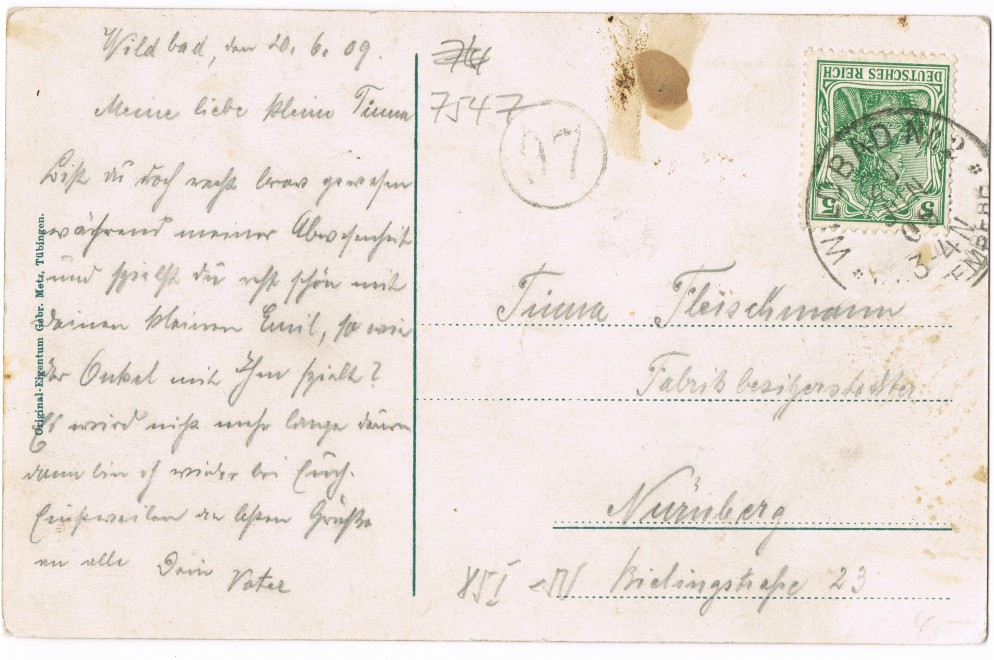 Wildbad, den 20. 6. 09.
Meine liebe kleine Tinna
Bist du doch recht brav gewesen
während meiner Abwesenheit
und spielst du recht schön mit
deinen kleinen Emil, so wie
der Onkel mit Ihm spielt?
Es wird nicht mehr lange dauern
dann bin ich wieder bei Euch.
Einstweilen die besten Grüße
an alle Dein Vater
Original-Eigentum Gebr. Metz, Tübingen.
7547
97
DEUTSCHES REICH
5 5
WILDBAD No 2
3-4N
Tinna Fleischmann
Fabrikbesitzerstochter
Nürnberg
Bielingstraße 23
85 I
4,-